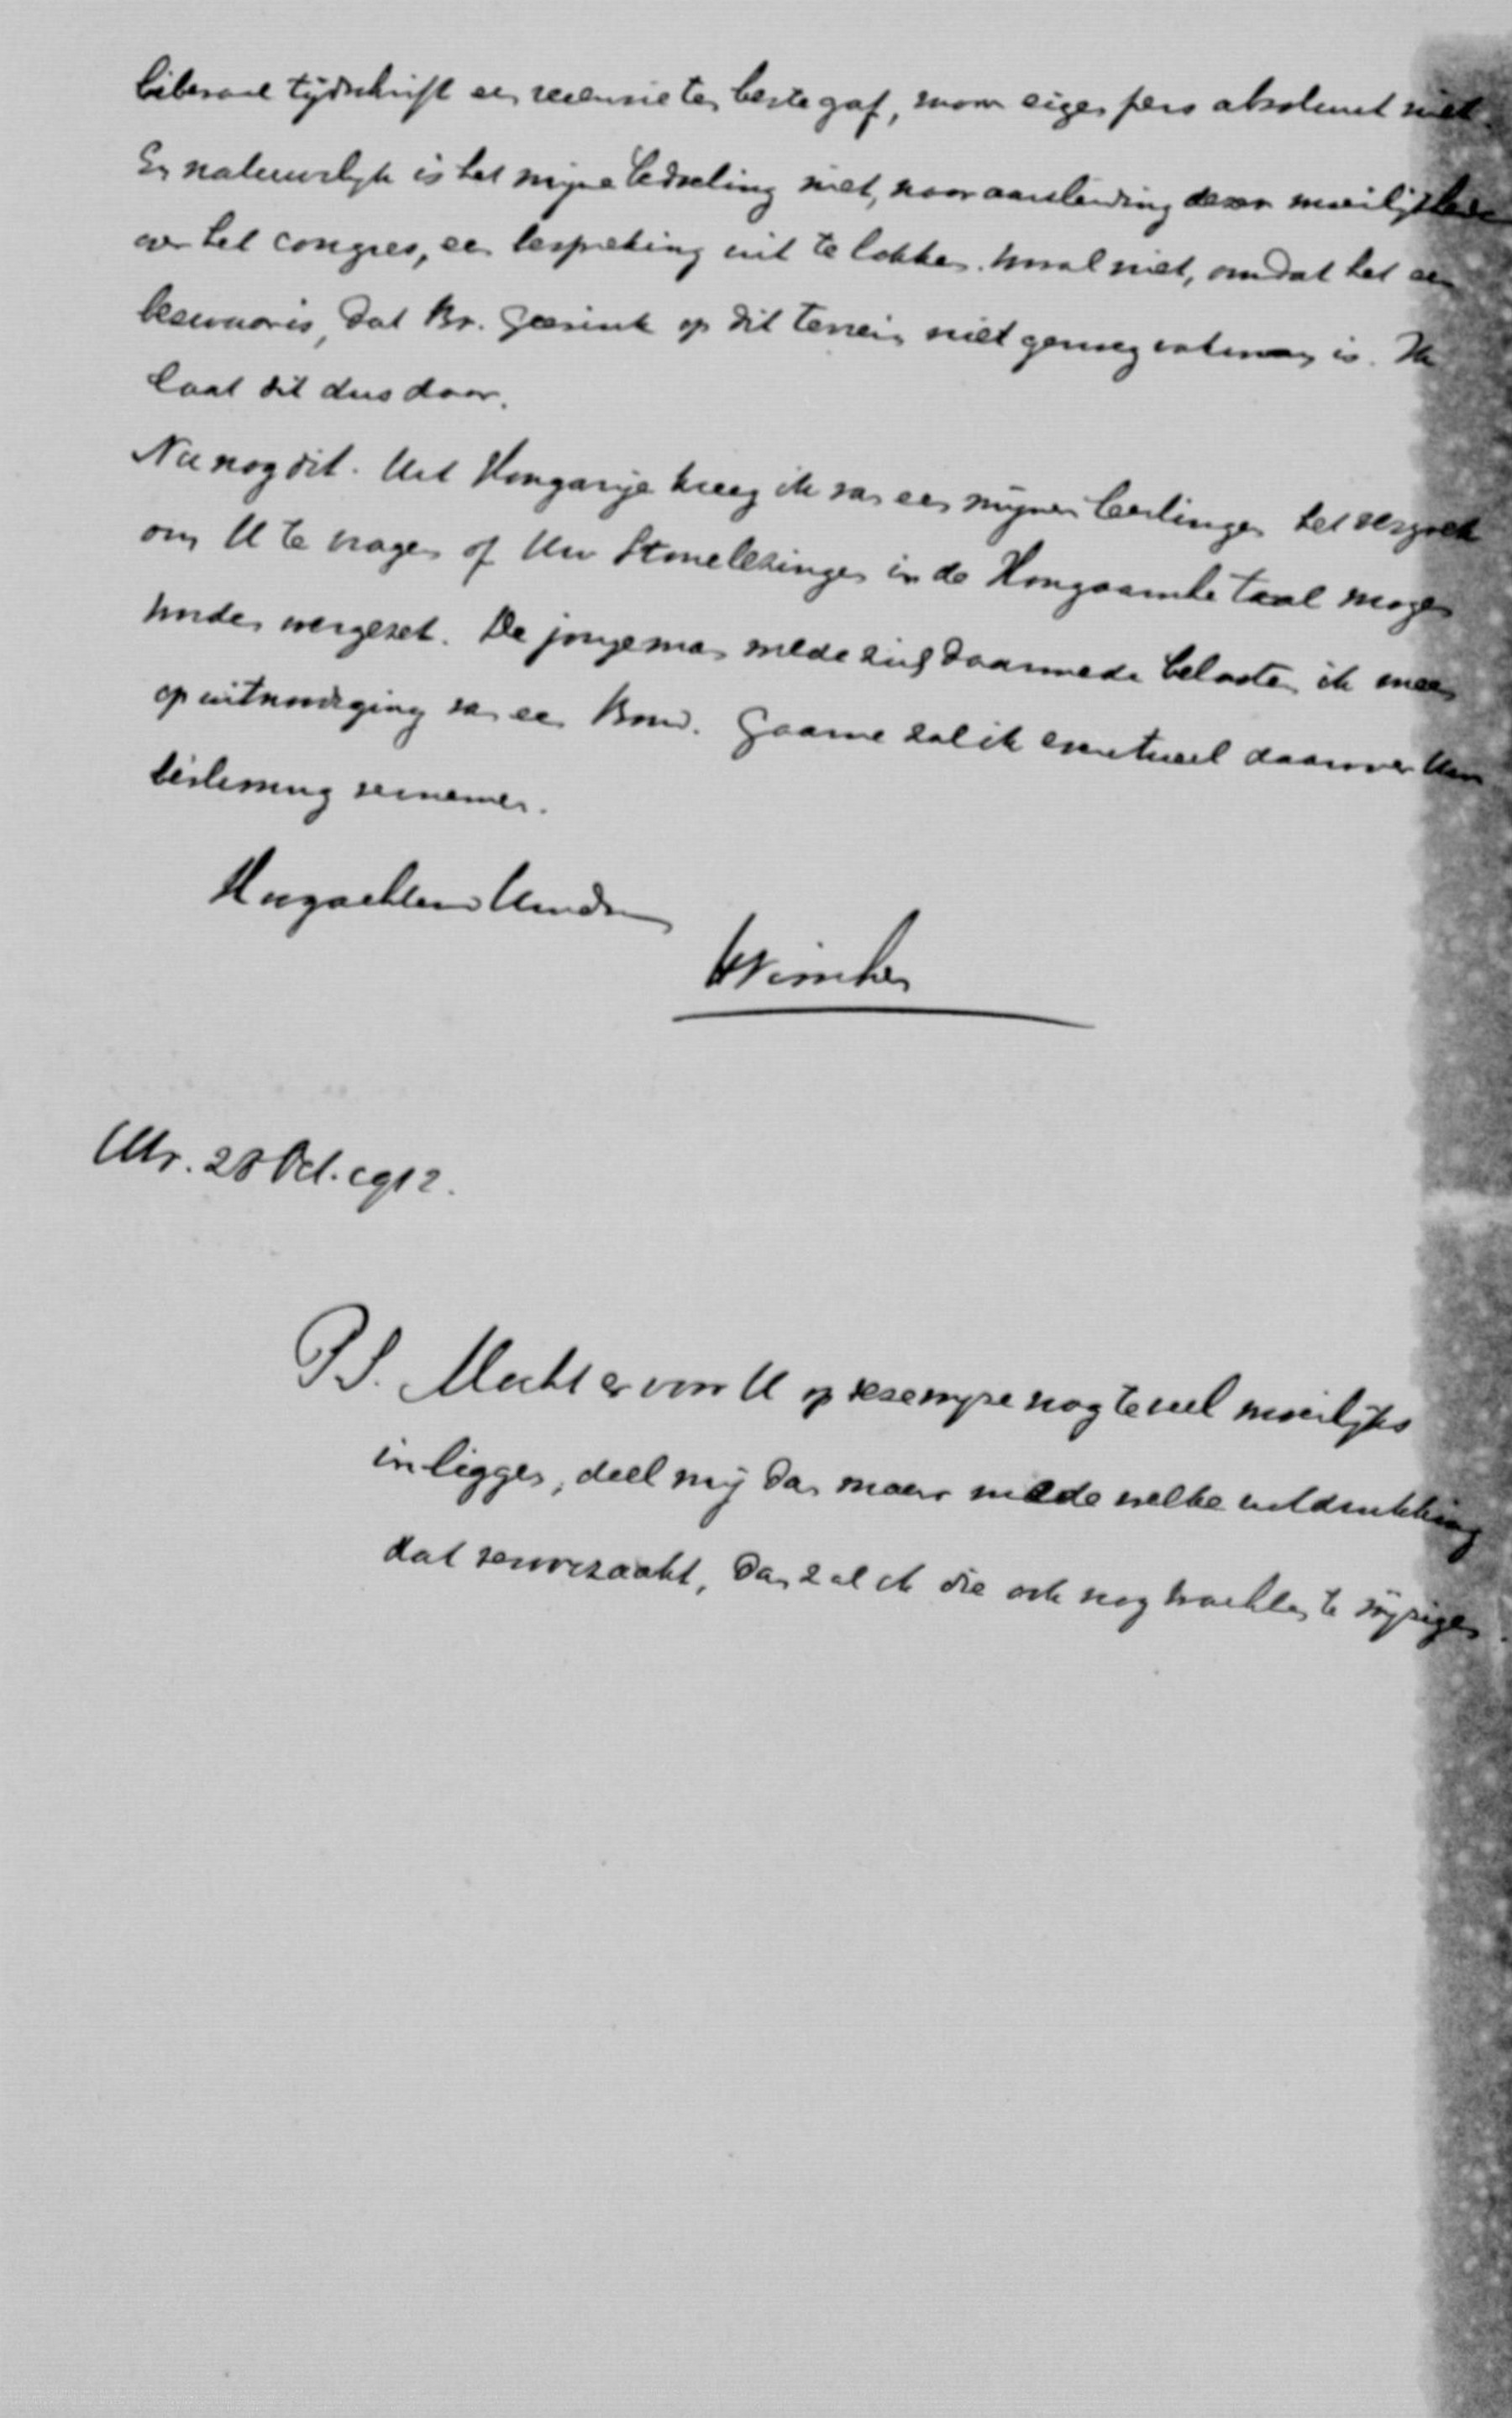 liberaal tijdschrift een recensie ten beste gaf, maar eigen pers absoluut niet.
En natuurlijk is het mijne bedoeling niet, naar aanleiding dezer moeilijkheden
over het congres, een bespreking uit te lokken. Vooral niet, omdat het een
bezwaar is, dat Br. Geesink op dit terrein niet genoeg vakman is. Ik
laat dit dus daar.
Nu nog dit. Uit Hongarije kreeg ik van een mijner leerlingen het verzoek
om U te vragen of Uw Stonelezingen in de Hongaarsche taal mogen
worden overgezet. De jongeman wilde zich daarmede belasten, ik meen
op uitnoodiging van een Bond. Gaarne zal ik eventueel daarover Uw
beslissing vernemen.
Hoogachtend
Utr. 28 Oct. 1912.
P.S. Mocht er voor U op deze wijze nog te veel moeilijks
in liggen, deel mij dan maar mede welke uitdrukking
dat veroorzaakt, dan zal ik die ook nog trachten te wijzigen.